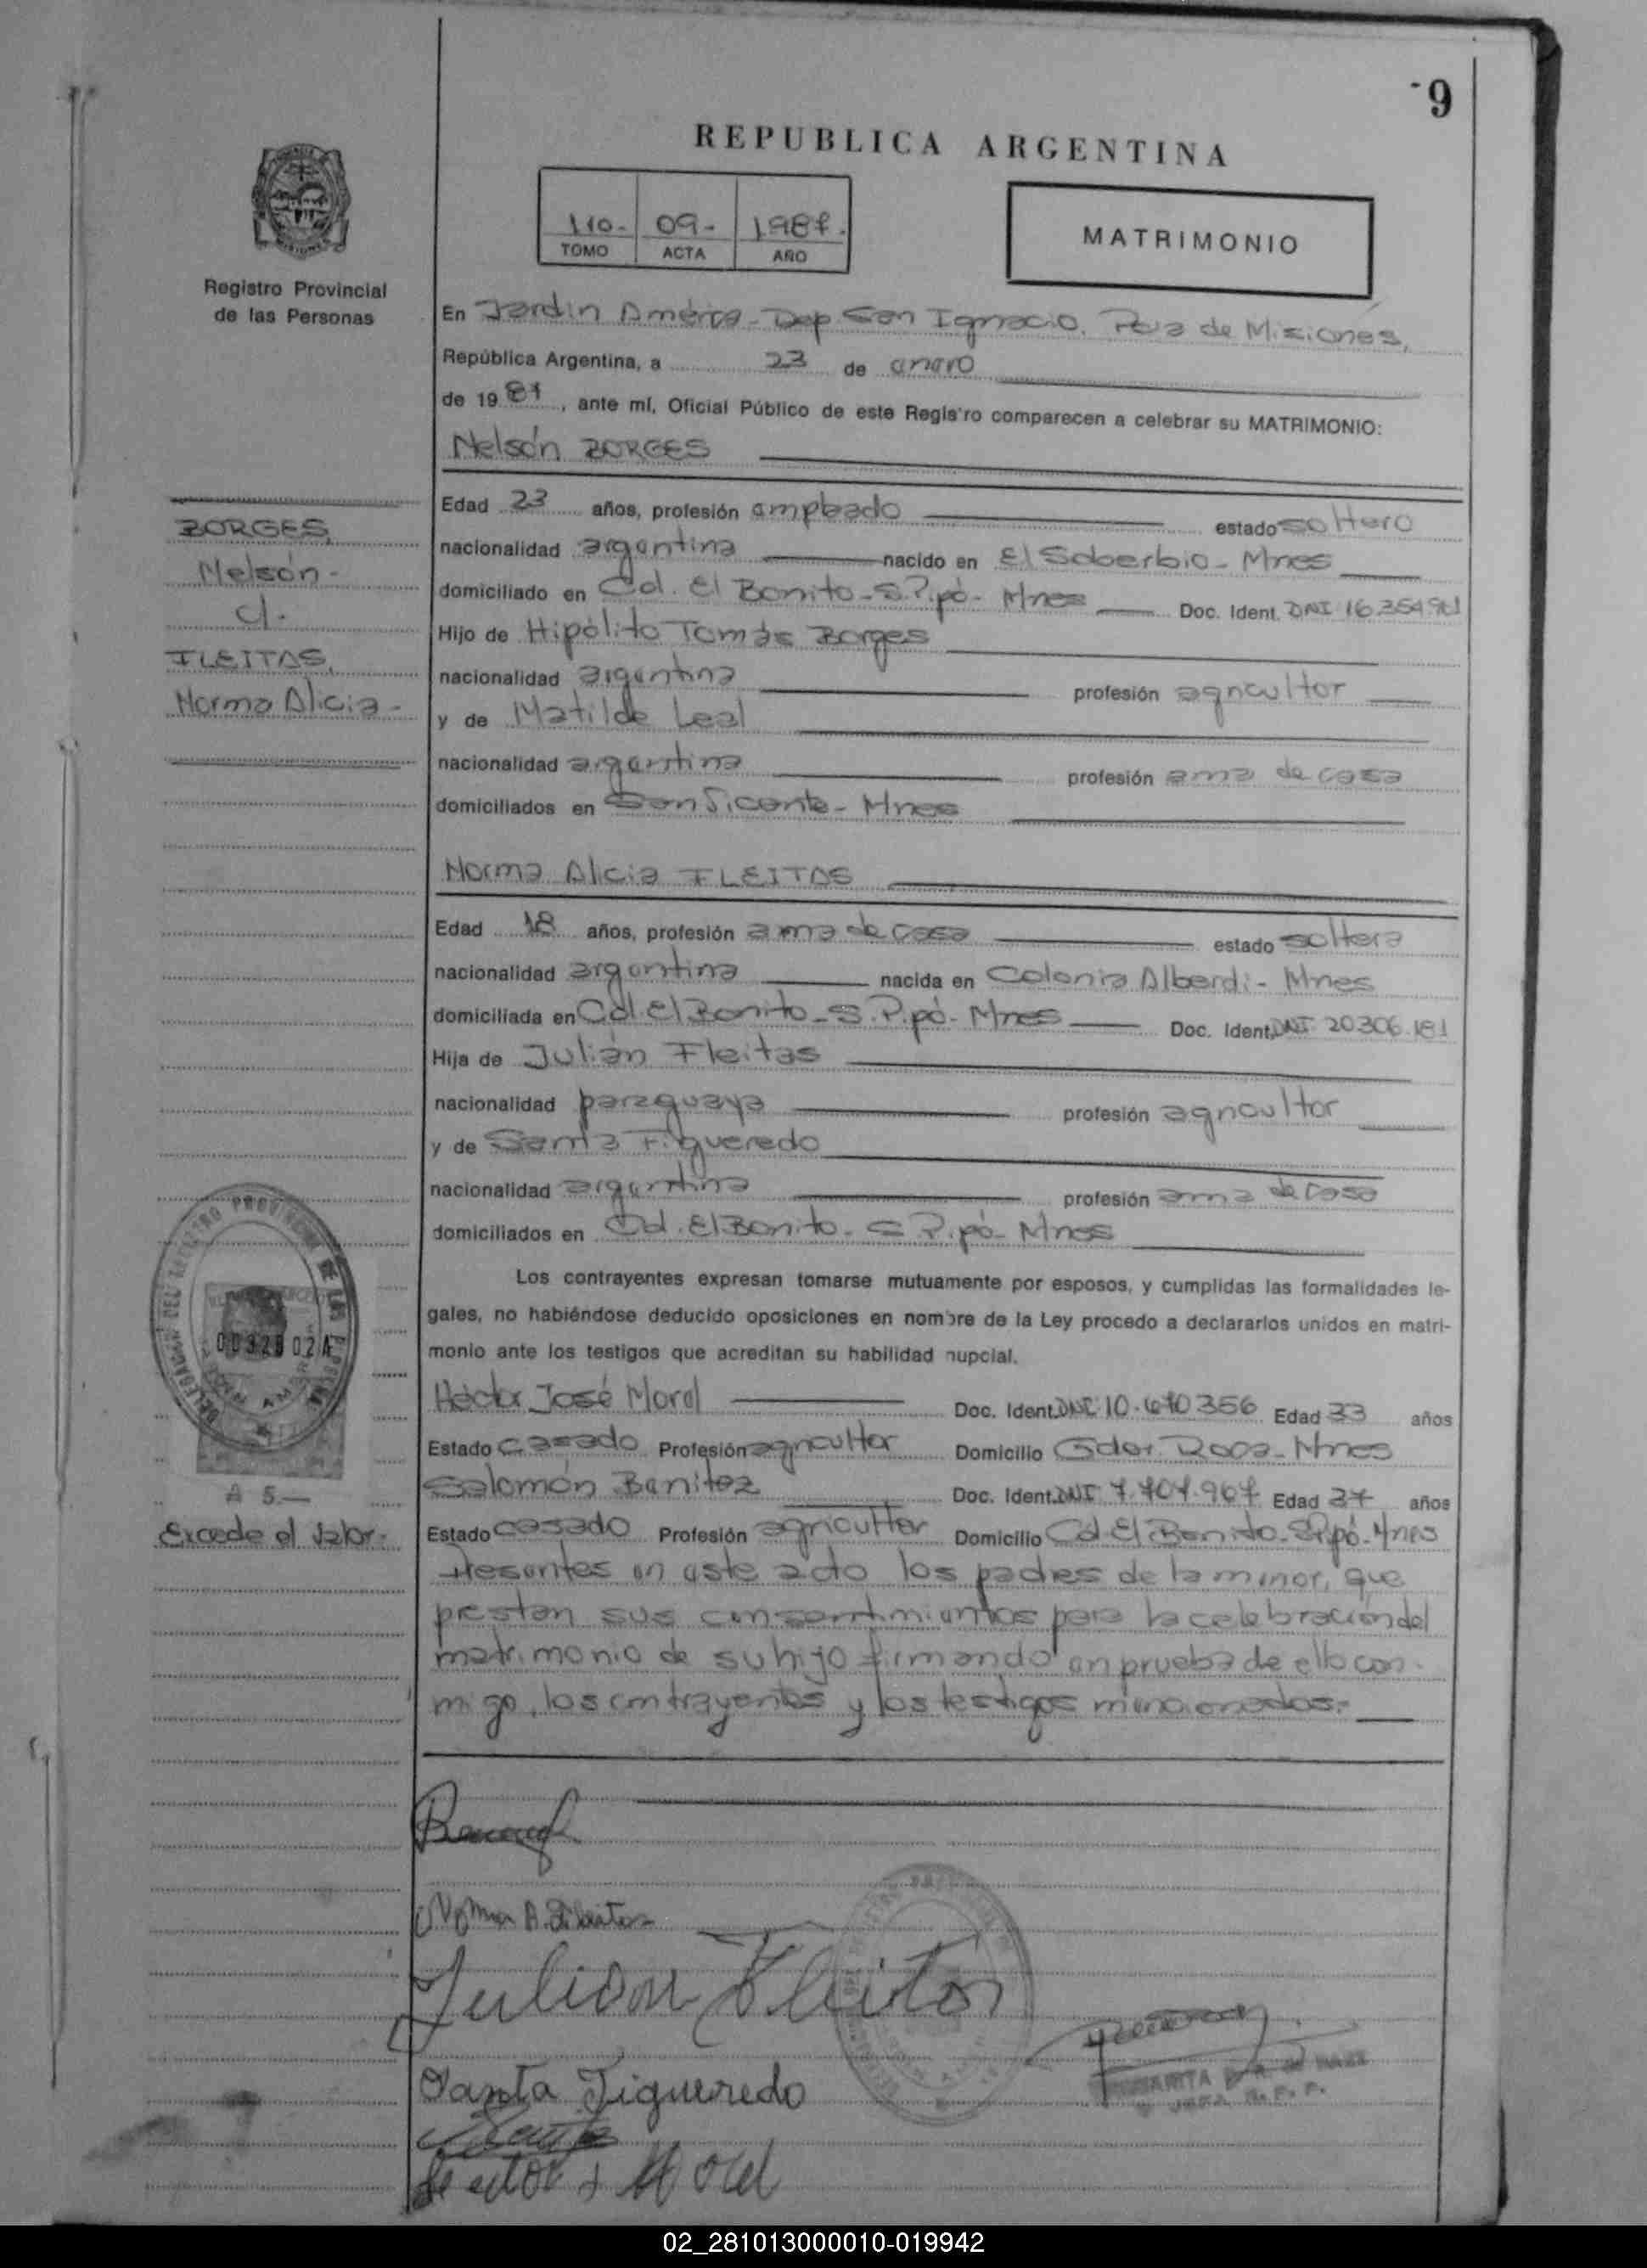 -9
REPUBLICA ARGENTINA
110- 09- 1987.
TOMO ACTA AÑO
MATRIMONIO
Registro Provincial
de las Personas
En Jardín América - Dep San Ignacio. Pcia de Misiones,
República Argentina, a 23 de enero
de 19 87, ante mí, Oficial Público de este Regis'ro comparecen a celebrar su MATRIMONIO:
Nelsón BORGES
BORGES,
Nelsón-
c/.
FLEITAS,
Norma Alicia-
Edad 23 años, profesión empleado estado soltero
nacionalidad argentina nacido en El Soberbio - Mnes
domiciliado en Col. El Bonito - S. P.pó - Mnes Doc. Ident. DNI 16.354.981
Hijo de Hipólito Tomás Borges
nacionalidad argentina profesión agricultor
y de Matilde Leal
nacionalidad argentina profesión ama de casa
domiciliados en San Vicente - Mnes
Norma Alicia FLEITAS
Edad 18 años, profesión ama de casa estado soltera
nacionalidad argentina nacida en Colonia Alberdi - Mnes
domiciliada en Col. El Bonito - S. P.pó - Mnes Doc. Ident. DNI 20306.181
Hija de Julián Fleitas
nacionalidad paraguaya profesión agricultor
y de Santa Figueredo
nacionalidad argentina profesión ama de casa
domiciliados en Col. El Bonito - S P.pó - Mnes
Los contrayentes expresan tomarse mutuamente por esposos, y cumplidas las formalidades le-
gales, no habiéndose deducido oposiciones en nombre de la Ley procedo a declararlos unidos en matri-
monio ante los testigos que acreditan su habilidad nupcial.
Héctor José Morel Doc. Ident. DNI 10.670356 Edad 33 años
Estado casado Profesión agricultor Domicilio Gdor. Roca - Mnes
Salomón Benítez Doc. Ident. DNI 7.707.967 Edad 37 años
Estado casado Profesión agricultor Domicilio Col El Bonito - S P.pó - Mnes
DELEGACION DEL REGISTRO PROVINCIAL DE LAS PERSONAS
003280 2A
A 5.—
Excede el valor-
Presentes en este acto los padres de la menor, que
prestan sus consentimientos para la celebración del
matrimonio de su hijo firmando en prueba de ello con-
migo, los contrayentes y los testigos mencionados.-
Norma A. Fleitas
Julian Fleitas
Santa Figueredo
Hector J Morel
JEFA R.P.P.
02_281013000010-019942